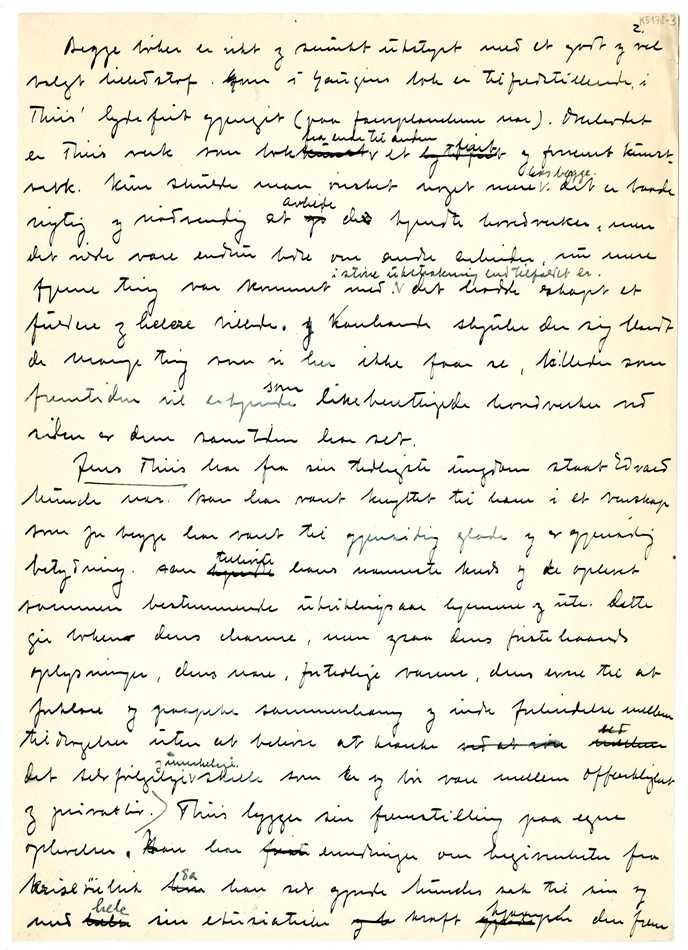 K5178-3
2.
Begge bøker er rikt og smukt utstyret med et godt og vel
valgt billedstof. som i Gauguins bok er tilfredstillende, i
Thiis' lydefrit gjengit (paa farveplancherne nær). Overhodet
er Thiis verk som bok fra ende til anden et og fornemt kunst-
verk. Kun skulde man ønsket noget mere hos begge. det er baade
rigtig og nødvendig at avbilde de kjendte hovedverker, men
det vilde være endnu bedre om andre arbeider, om mere
fjerne ting var kommet med i større utstrækning end tilfældet er. det hadde skapt et
fuldere og helere billede. Kanhænde skjuler der sig blandt
de mange ting som vi her ikke faar se, billeder som
fremtiden vil erkjende som likeberettigede hovedverker ved
siden av dem samtiden har set.
Jens Thiis har fra sin tidligste ungdom staat Edvard
Munch nær. Han har vært knyttet til ham i et venskap
som for begge har vært til gjensidig glæde og av gjensidig
betydning. Han hans nærmeste kreds og oplevet
sammen bestemmende utviklingsaar hjemme og ute. Dette
gir boken dens charme, men ogsaa dens førstehaands
oplysninger, dens nære, fortrolige varme, dens evne til at
forklare og paapeke sammenhæng og indre forbindelse mellem
tildragelser uten at behøve at krænke
det selvfølgelige og umerkelige skille som er og bør være mellem offentlighet
og privatliv. Thiis bygger sin fremstilling paa egne
oplevelser. Han har erindringer om begivenheter fra
da han selv gjorde Munchs sak til sin og
med hele sin entusiastiske kraft den frem